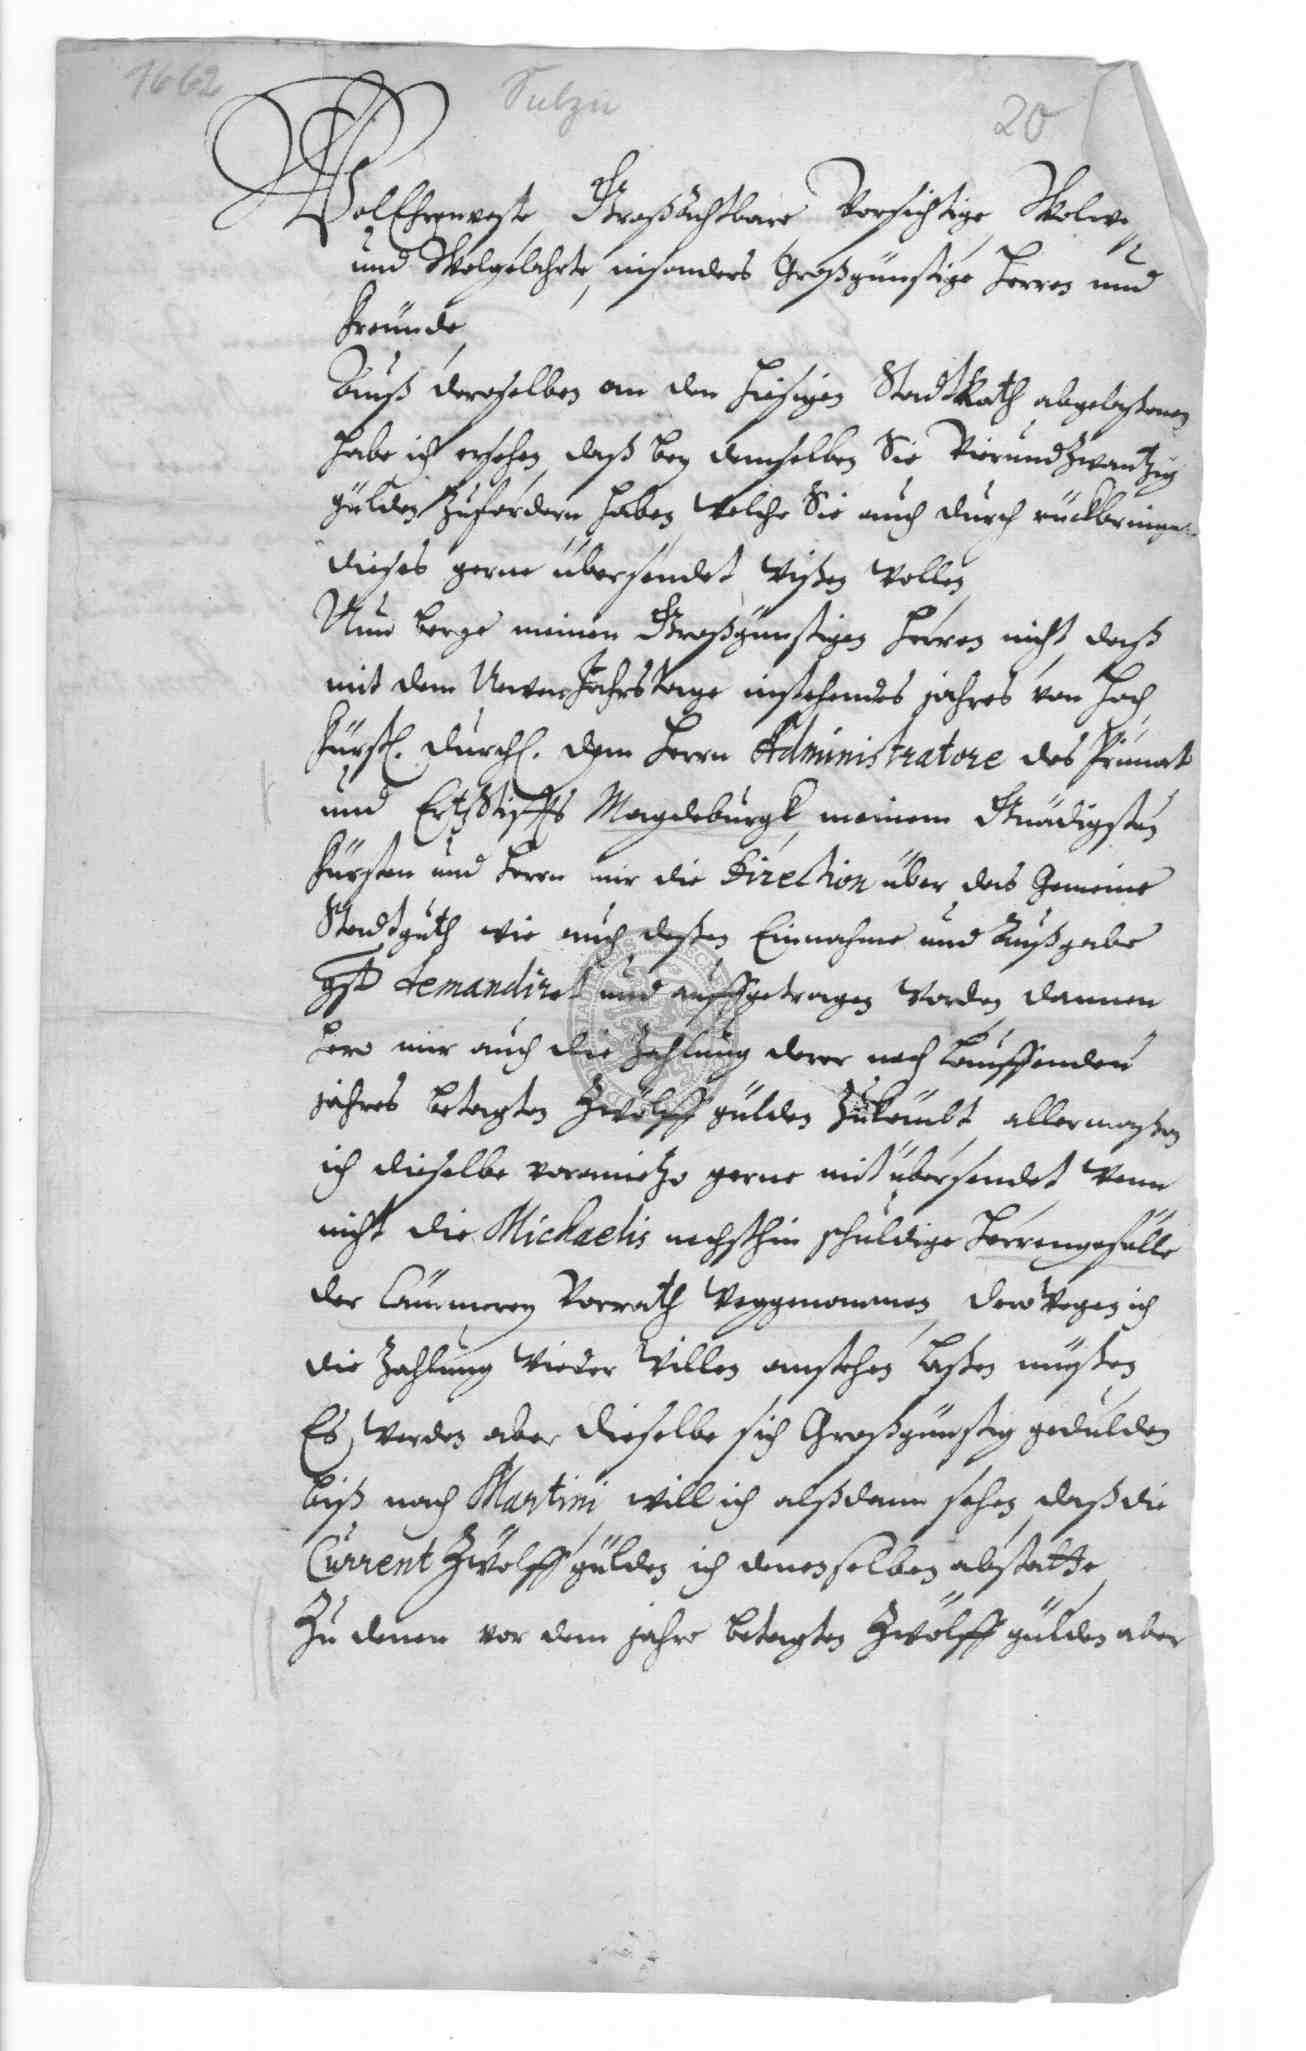 1662 Sulza 20
WolEhrenveste, Großachtbare, Vorsichtige, Wolw
und Wolgelahrte, insonders Großgünstige Herren und
Freunde,
Auß deroselben an den hiesigen StadtRath abgelaßenen
habe ich ersehen, daß bey demselben Sie Vierundzwantzig
gülden zufordern haben, welche Sie auch durch rückbringern
dieses gerne übersendet wißen wollen,
Nun berge meinen Großgünstigen Herren nicht, daß
mit dem NewenJahrsTage instehendes jahres von Hoch
fürstl. Durchl. dem Herrn Administratore des Primat
und ErtzStiffts Magdeburgk, meinem Gnädigsten
Fürsten und Herrn mir die Direction über das Gemeine
Stadtguth wie auch deßen Einnahme und Außgabe
gst demandiret und auffgetragen worden, dannen
hero mir auch die Zahlung derer nach lauffenden
jahres betagten Zwölff gülden zukömbt, allermaßen
ich dieselbe voranietzo gerne mit übersendet, wenn
nicht die Michaelis nechsthin schuldige Herrengefälle
der Cämmerey Vorrath weggenommen, derowegen ich
die Zahlung wieder willen anstehen laßen müßen,
Es werden aber dieselbe sich Großgünstig gedulden
biß nach Martini, will ich alßdann sehen, daß die
Current Zwölff gülden ich denenselben abstatte,
Zu denen vor dem jahre betagten Zwölff gülden aber